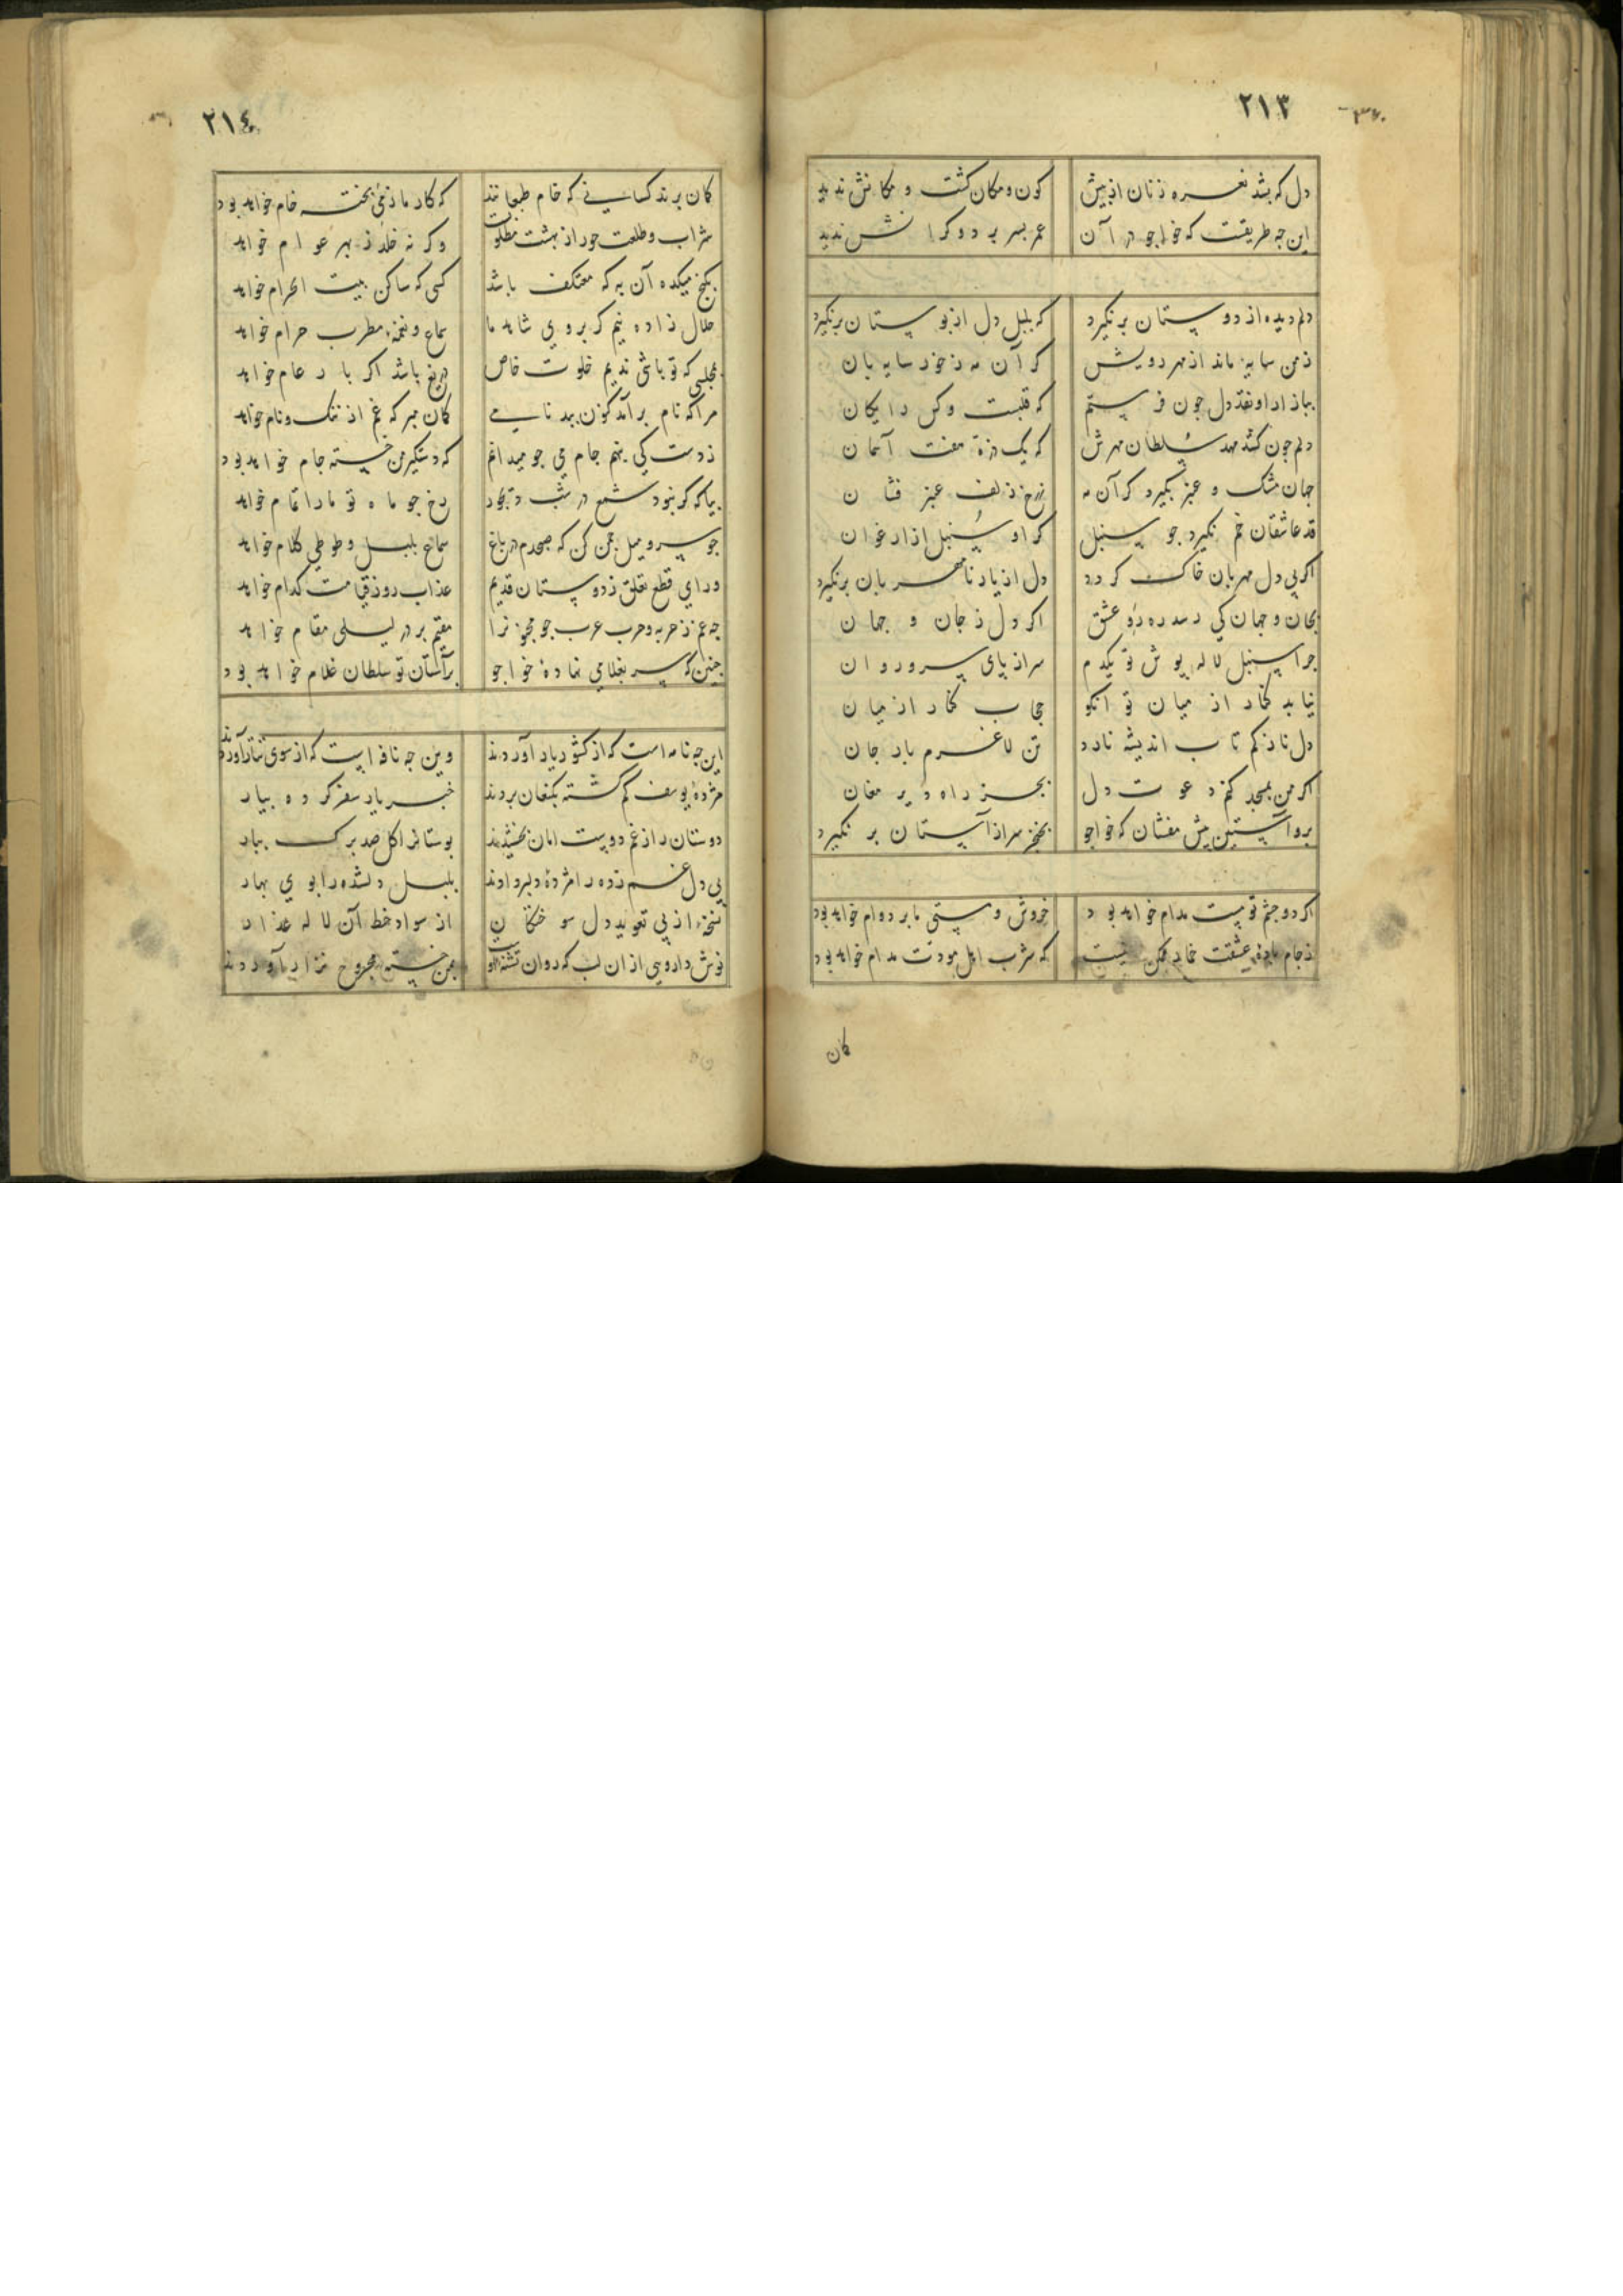 ٢١٣
دل که بشد نعره زنان از پیش کون و مکان کشت و مکانش ندید
این چه طریقست که خواجو در آن عمر بسر برد و کرانش ندید
دلم دیده از دوستان برنکیرد که بلبل دل از بوستان برنکیرد
ز من سایه ماند از مهر رویش کر آن مه ز خود سایه بان
ببازار او نقد دل چون فرستم که قلبست و کس رایکان
دلم چون کشد مهد سلطان مهرش که یک ذره هفت آسمان
جهان مشک و عنبر بکیرد کر آن مه ز رخ زلف عنبر فشان
قد عاشقان خم نکیرد چو سنبل کر او سنبل از ارغوان
اکر بی دل مهربان خاک کردد دل از یار نامهربان برنکیرد
بجان و جهان کی رسد ره رو عشق اکر دل ز جان و جهان
چرا سنبل لاله پوش تو یکدم سر از پای سرو روان
نیابد کنار از میان تو آنکو حجاب کنار از میان
دل نازکم تاب اندیشه نارد تن لاغرم بار جان
اکر من بمسجد کنم دعوت دل بجز راه دیر مغان
برو آستین پیش مفشان که خواجو بخنجر سر از آستان بر نکیرد
اکر دو چشم تو مست مدام خواهد بود خروش و مستی ما بر دوام خواهد بود
ز جام باده عشقت خمار ممکن نیست که شرب اهل مودت مدام خواهد بود
کان
٢١٤
کمان برند کسانی که خام طبعانند که کار ما ز می پخته خام خواهد بود
شراب و طلعت حور از بهشت مطلوبست وکر نه خلد ز بهر عوام خواهد
بکنج میکده آن به که معتکف باشد کسی که ساکن بیت الحرام خواهد
حلال زاده نیم کر بروی شاهد ما سماع و نغمه مطرب حرام خواهد
بمجلسی که تو باشی ندیم خلوت خاص دریغ باشد اکر بار عام خواهد
مرا که نام برآمد کنون ببدنامی کمان مبر که غم از ننک و نام خواهد
ز دست کی بنهم جام می چو میدانم که دستکیر من خسته جام خواهد بود
بیا که کر نبود شمع در شب دیجور رخ چو ماه تو ما را تمام خواهد
چو سرو میل چمن کن که صبحدم در باغ سماع بلبل و طوطی کلام خواهد
ورای قطع تعلق ز دوستان قدیم عذاب روز قیامت کدام خواهد
چه غم ز حربه و حرب عرب چو مجنونرا مقیم بر در لیلی مقام خواهد
چنین که سر بغلامی نهاده خواجو بر آستان تو سلطان غلام خواهد بود
این چه نامه است که از کشور یار آوردند وین چه نافه ایست که از سوی تتار آوردند
مژده یوسف کم کشته بکنعان بردند خبر یار سفر کرده بیار
دوستان را ز غم دوست امان بخشیدند بوستانرا کل صد برک ببار
بی دل غم زده را مژده دلبر دادند بلبل دلشده را بوی بهار
نسخه از پی تعوید دل سوختکان از سواد خط آن لاله عذار
نوش دارویی از ان لب که روان تشنه اوست بمن خسته مجروح نزار آوردند